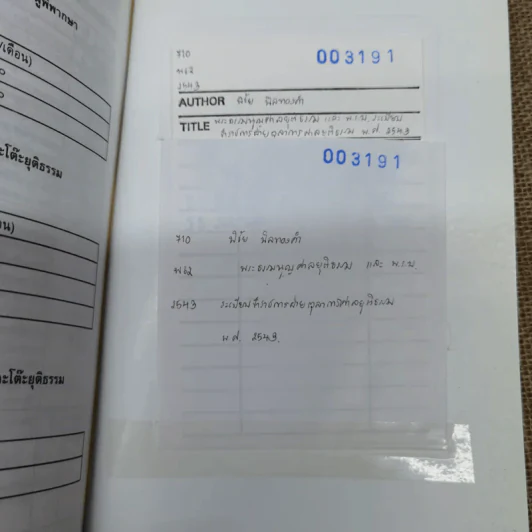 ผู้พิพากษา
/เดือน)
ะโต๊ะยุติธรรม
น)
ะโต๊ะยุติธรรม
710
003191
พ62
2543
AUTHOR พิชัย นิลทองคำ
TITLE พระธรรมนูญศาลยุติธรรม และ พ.ร.บ. ระเบียบ
ข้าราชการฝ่ายตุลาการศาลยุติธรรม พ.ศ. 2543
003191
710 พิชัย นิลทองคำ
พ62 พระธรรมนูญศาลยุติธรรม และ พ.ร.บ.
2543 ระเบียบข้าราชการฝ่ายตุลาการศาลยุติธรรม
พ.ศ. 2543.